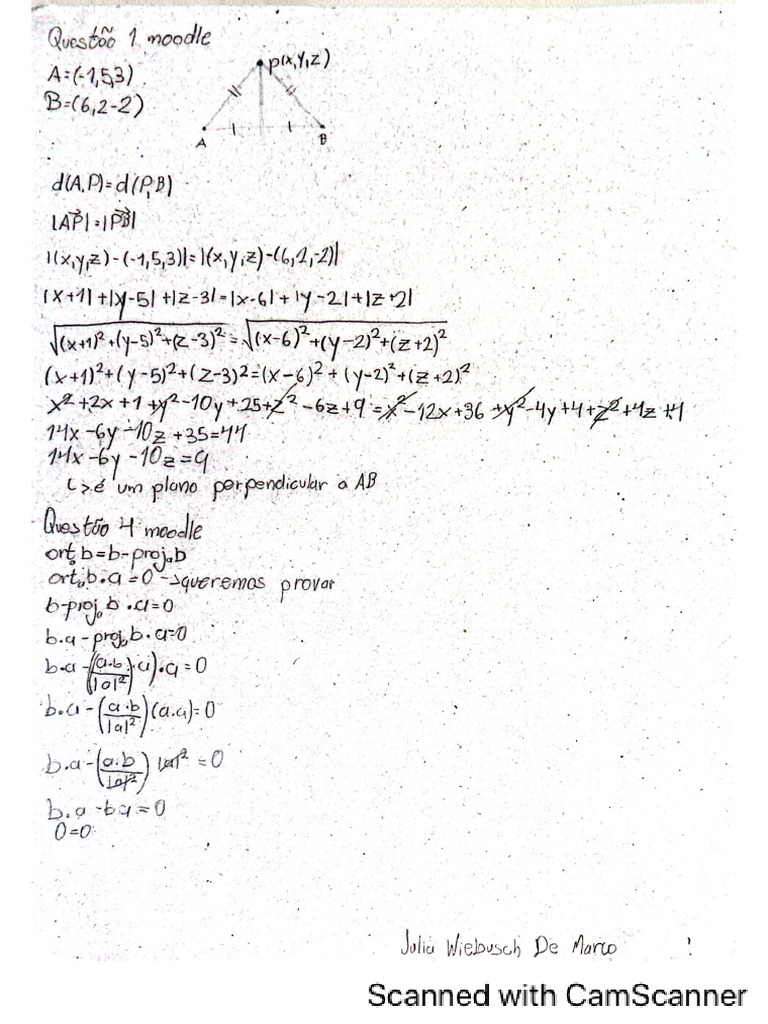 Questão 1 moodle
A=(-1,5,3)
B=(6,2-2)
P(x,y,z)
A B
d(A,P)=d(P,B)
|AP|=|PB|
|(x,y,z)-(-1,5,3)|=|(x,y,z)-(6,2,-2)|
|x+1|+|y-5|+|z-3|=|x-6|+|y-2|+|z+2|
√(x+1)²+(y-5)²+(z-3)²=√(x-6)²+(y-2)²+(z+2)²
(x+1)²+(y-5)²+(z-3)²=(x-6)²+(y-2)²+(z+2)²
x²+2x+1+y²-10y+25+z²-6z+9=x²-12x+36+y²-4y+4+z²+4z+4
14x-6y-10z+35=44
14x-6y-10z=9
↳é um plano perpendicular a AB
Questão 4 moodle
ortₐb=b-projₐb
ortₐb•a=0→queremos provar
b-projₐb•a=0
b.a-projₐb•a=0
b•a-((a.b/|a|²)•a)•a=0
b.a-(a•b/|a|²)(a.a)=0
b.a-(a.b/|a|²)|a|²=0
b.a-ba=0
0=0
Julia Wiebusch De Marco
Scanned with CamScanner